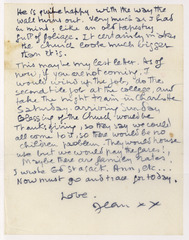 He is quite happy with the way the
wall turns out. Very much as I had
in mind, like an old tapestry
full of foliage. It certainly makes
the church look much bigger
than it is.
This may be my last letter. As of
now, if you are not coming I
would wind up the job, do the
second tile job at the college, and
take the night train in Charlotte
Saturday arriving Sunday.
Blessing of the Church would be
Thanksgiving, so they say we could
all come to it, so there would be no
children problem. They would house
us but we would pay the fares!
Maybe there are family rates.
I wrote Ed &
Ann, Etc...
Now must go and post for today.
Love.
Jean x x